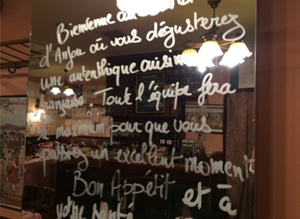 Bienvenue au
d'Anjou où vous dégusterez
une authentique cuisine
française. Tout l'équipe fera
le maximum pour que vous
passiez un excellent moment
Bon Appétit et à
votre santé